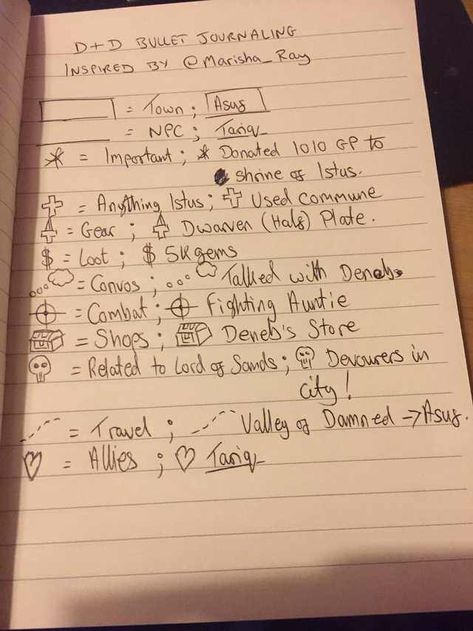 D+D BULLET JOURNALING
INSPIRED BY @Marisha_Ray
= Town; Asus
= NPC; Tariq
* = Important; * Donated 1010 GP to
shrine of Istus.
= Anything Istus; Used commune
= Gear; Dwarven (Half) Plate.
$ = Loot; $ 5K gems
= Convos; Talked with Deneb.
= Combat; Fighting Auntie
= Shops; Deneb's Store
= Related to Lord of Sands; Devourers in
city!
= Travel; Valley of Damned → Asus.
= Allies; Tariq